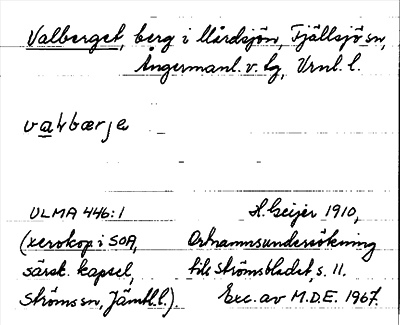 Valberget, berg i Mårdsjön, Fjällsjö sn,
Ångermanl. v. lg, Vrnl. l.
ULMA 446:1 H. Geijer 1910,
(xerokop. i SOA, Ortnamnsundersökning
särsk. kapsel, till Strömsbladet, s. 11.
Ströms sn, Jämtl. l.). Exc. av M.D.E. 1967.